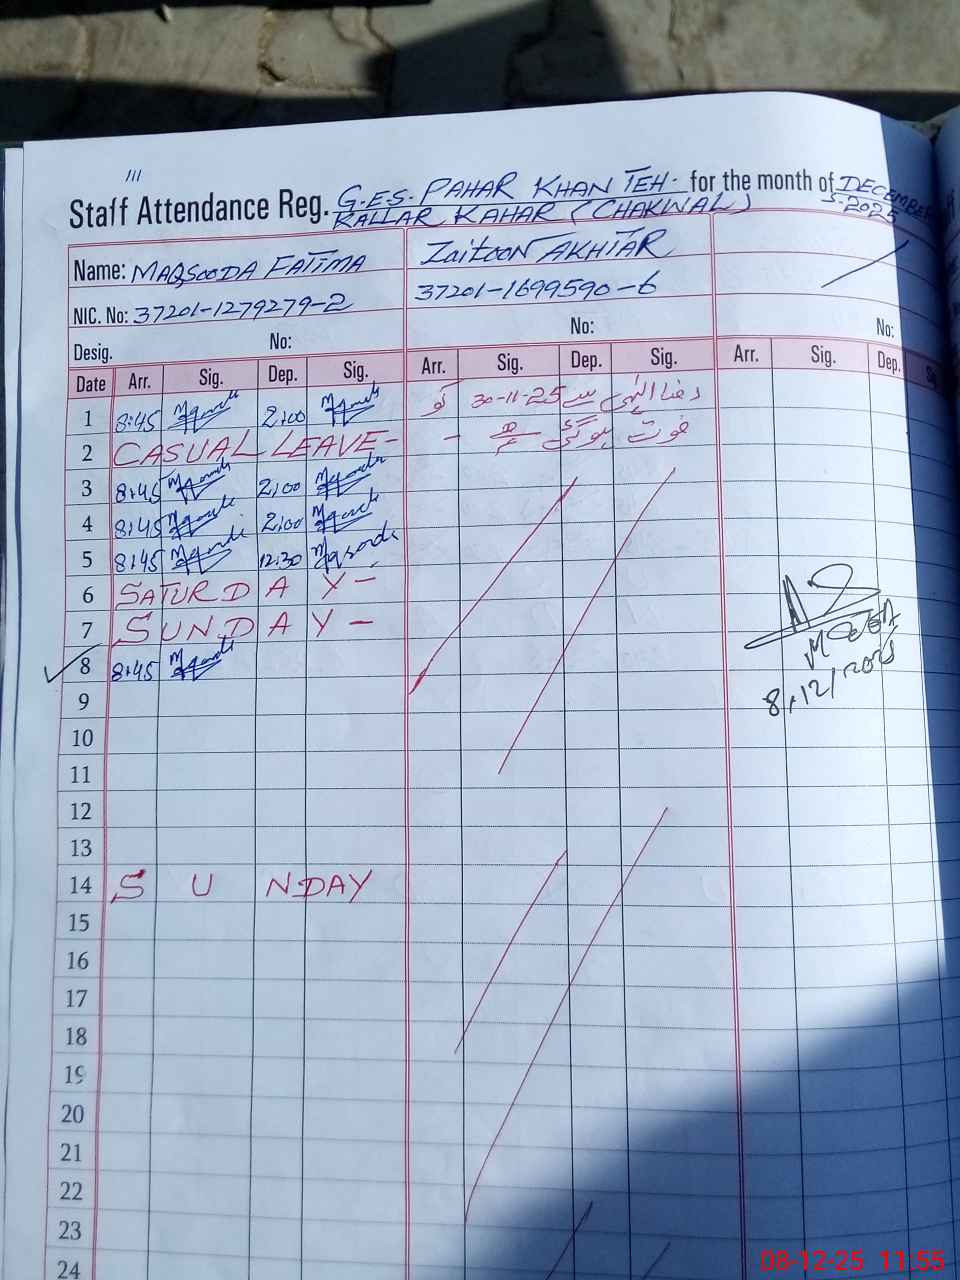 111
Staff Attendance Reg. G.E.S. PAHAR KHAN TEH- for the month of DECEMBER
KALLAR KAHAR (CHAKWAL) -2025
Name: MAQSOODA FATIMA Zaitoon AKHTAR
NIC. No: 37201-1279279-2 37201-1699590-6
Desig. No: No: No:
Date Arr. Sig. Dep. Sig. Arr. Sig. Dep. Sig. Arr. Sig. Dep.
1 8:45 2:00 رضا الہٰی سے 30-11-25 کو
2 CASUAL LEAVE- فوت ہو گئی
3 8:45 2:00
4 8:45 2:00
5 8:45 12:30 Maqsooda
6 SATURDAY-
7 SUNDAY-
8 8:45
8/12/2025
9
10
11
12
13
14 SUNDAY
15
16
17
18
19
20
21
22
23
24
08-12-25 11:55